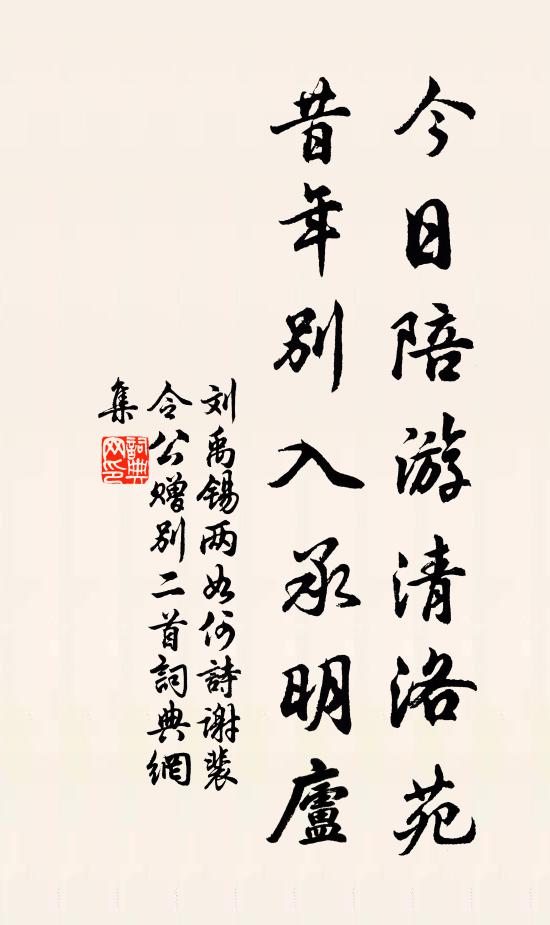 今日陪游清洛苑
昔年别入承明廬
刘禹锡两如何詩谢裴
令公赠别二首詞典網
集